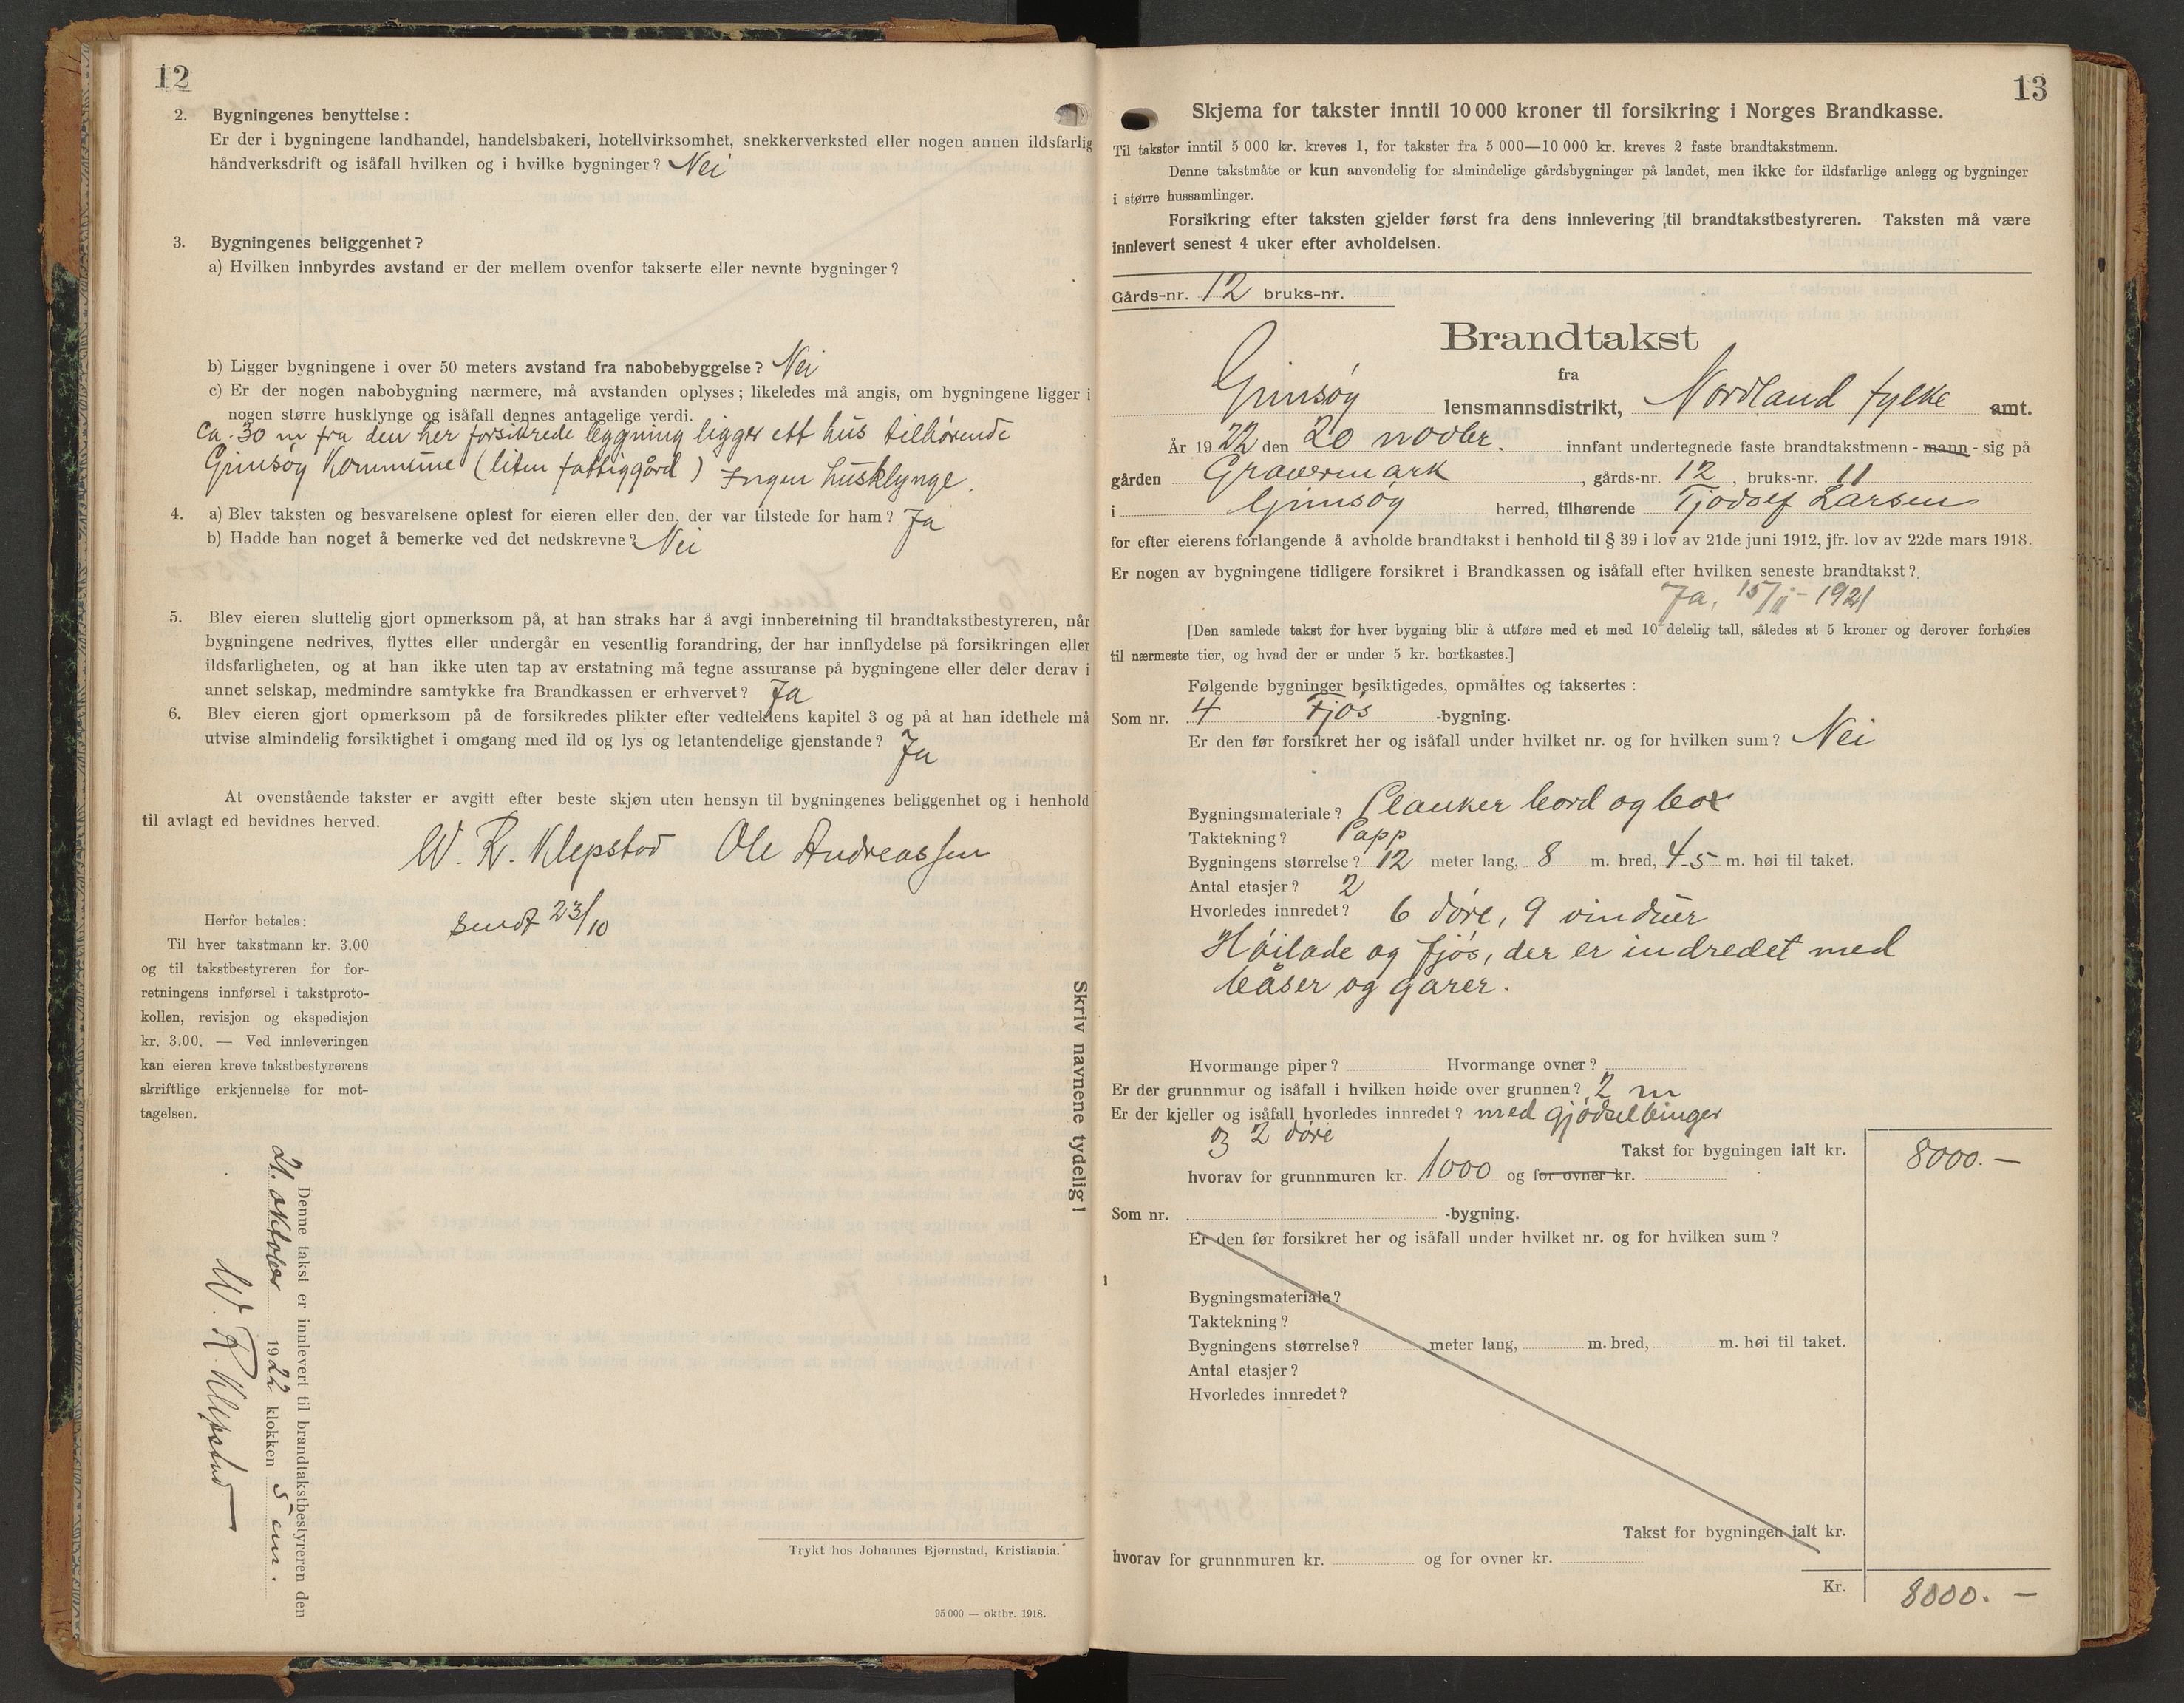 12
2. Bygningenes benyttelse:
Er der i bygningene landhandel, handelsbakeri, hotellvirksomhet, snekkerverksted eller nogen annen ildsfarlig
håndverksdrift og isåfall hvilken og i hvilke bygninger? Nei
3. Bygningenes beliggenhet?
a) Hvilken innbyrdes avstand er der mellem ovenfor takserte eller nevnte bygninger?
b) Ligger bygningene i over 50 meters avstand fra nabobebyggelse? Nei
c) Er der nogen nabobygning nærmere, må avstanden oplyses; likeledes må angis, om bygningene ligger i
nogen større husklynge og isåfall dennes antagelige verdi.
Ca. 30 m fra den her forsikrede byggning ligger ett hus tilhørende
Gimsøy Kommune (liten fattiggård) Ingen husklynge.
4. a) Blev taksten og besvarelsene oplest for eieren eller den, der var tilstede for ham? Ja
b) Hadde han noget å bemerke ved det nedskrevne? Nei
5. Blev eieren sluttelig gjort opmerksom på, at han straks har å avgi innberetning til brandtakstbestyreren, når
bygningene nedrives, flyttes eller undergår en vesentlig forandring, der har innflydelse på forsikringen eller
ildsfarligheten, og at han ikke uten tap av erstatning må tegne assuranse på bygningene eller deler derav i
annet selskap, medmindre samtykke fra Brandkassen er erhvervet? Ja
6. Blev eieren gjort opmerksom på de forsikredes plikter efter vedtektens kapitel 3 og på at han idethele må
utvise almindelig forsiktighet i omgang med ild og lys og letantendelige gjenstande? Ja
At ovenstående takster er avgitt efter beste skjøn uten hensyn til bygningenes beliggenhet og i henhold
til avlagt ed bevidnes herved.
W. R. Klepstad Ole Andreassen
sendt 23/10
Herfor betales:
Til hver takstmann kr. 3.00
og til takstbestyreren for for-
retningens innførsel i takstproto-
kollen, revisjon og ekspedisjon
kr. 3.00. — Ved innleveringen
kan eieren kreve takstbestyrerens
skriftlige erkjennelse for mot-
tagelsen.
Skriv navnene tydelig!
Denne takst er innlevert til brandtakstbestyreren den
21. oktober 1922 klokken 5 em.
W. R. Klepstad
Trykt hos Johannes Bjørnstad, Kristiania.
95 000 — oktbr. 1918.
13
Skjema for takster inntil 10 000 kroner til forsikring i Norges Brandkasse.
Til takster inntil 5 000 kr. kreves 1, for takster fra 5 000—10 000 kr. kreves 2 faste brandtakstmenn.
Denne takstmåte er kun anvendelig for almindelige gårdsbygninger på landet, men ikke for ildsfarlige anlegg og bygninger
i større hussamlinger.
Forsikring efter taksten gjelder først fra dens innlevering til brandtakstbestyreren. Taksten må være
innlevert senest 4 uker efter avholdelsen.
Gårds-nr. 12 bruks-nr.
Brandtakst
fra
Gimsøy lensmannsdistrikt, Nordland fylke amt.
År 1922 den 20 novbr. innfant undertegnede faste brandtakstmenn - mann - sig på
gården Gravermark, gårds-nr. 12, bruks-nr. 11
i Gimsøy herred, tilhørende Tjodolf Larsen
for efter eierens forlangende å avholde brandtakst i henhold til § 39 i lov av 21de juni 1912, jfr. lov av 22de mars 1918.
Er nogen av bygningene tidligere forsikret i Brandkassen og isåfall efter hvilken seneste brandtakst?
Ja, 15/11 - 1921
[Den samlede takst for hver bygning blir å utføre med et med 10 delelig tall, således at 5 kroner og derover forhøies
til nærmeste tier, og hvad der er under 5 kr. bortkastes.]
Følgende bygninger besiktigedes, opmåltes og taksertes:
Som nr. 4 Fjøs -bygning.
Er den før forsikret her og isåfall under hvilket nr. og for hvilken sum? Nei
Bygningsmateriale? Planker bord og
Taktekning? Papp
Bygningens størrelse? 12 meter lang, 8 m. bred, 4.5 m. høi til taket.
Antal etasjer? 2
Hvorledes innredet? 6 døre, 9 vinduer
Høilade og fjøs, der er indredet med
båser og garer.
Hvormange piper? Hvormange ovner?
Er der grunnmur og isåfall i hvilken høide over grunnen? 2 m
Er der kjeller og isåfall hvorledes innredet? med gjødselbinger
og 2 døre
Takst for bygningen ialt kr. 8000.—
hvorav for grunnmuren kr. 1000 og for ovner kr.
Som nr. -bygning.
Er den før forsikret her og isåfall under hvilket nr. og for hvilken sum?
Bygningsmateriale?
Taktekning?
Bygningens størrelse? meter lang, m. bred, m. høi til taket.
Antal etasjer?
Hvorledes innredet?
Takst for bygningen ialt kr.
hvorav for grunnmuren kr. og for ovner kr.
Kr. 8000.—